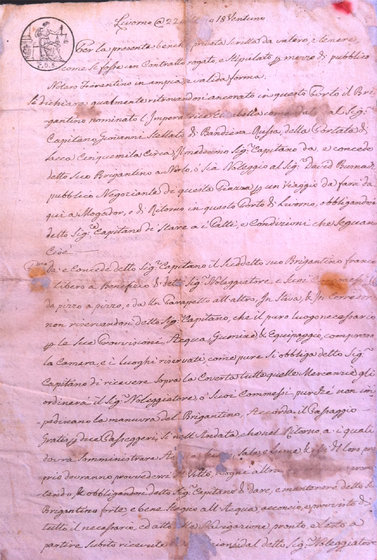 Livorno 22 1818
Per la presente benchè privata scritta da valere, e tenere
come se fosse un Contratto rogato, e Stipulato p mezzo di pubblico
Notaro Fiorentino in ampia, e valida forma.
Si dichiara qualmente ritrovandosi ancorato in questo Porto il Bri-
gantino nominato l'Imperatrice comandato dal Sig.
Capitano Giovanni di Bandiera Russa, della Portata di
Sacca Cinquemila Circa il medesimo Sig. Capitano da, e concede
detto suo Brigantino a Nolo, o sia Noleggio al Sig. David Buonaj
pubblico Negoziante di questa Piazza p un Viaggio da farsi da
qui a Mogador, e di Ritorno in questo Porto di Livorno, obbligandosi
detto Sig. Capitano di Stare a i Patti, e Condizioni che Seguono
Cioè
Primo da, e Concede detto Sig. Capitano il Suddetto suo Brigantino franco
e libero a Benefizio di detto Sig. Noleggiatore, e Suoi
da pizzo a pizzo, e da un Parapetto all'altro, In Stiva, & In Coverta
non riservandosi detto Sig. Capitano, che il puro luogo necessario
p le Sue Provvisioni, Acqua, Gumine & Equipaggio, compresa
la Camera, e i luoghi riservati, come pure si obbliga detto Sig.
Capitano di ricevere Sopra la Coverta tutte quelle Mercanzie gli
ordinerà il Sig. Noleggiatore ò Suoi Commessi purchè non im-
pediscano la manuvra del Brigantino. Accorda il Passaggio
Gratis p dieci Passeggeri, sì nell'Andata, che nel Ritorno a i quali
dovrà Somministrare Sale, e Lume
prio dovranno provvedersi
tendo, & obbligandosi detto Sig. Capitano di Dare, e mantenere detto suo
Brigantino forte, e bene Stagno all'Acqua, e provvisto di
tutto il necessario, ed atto alla Navigazione pronto, e lesto a
partire Subito ricevute dal detto Sig. Noleggiatore